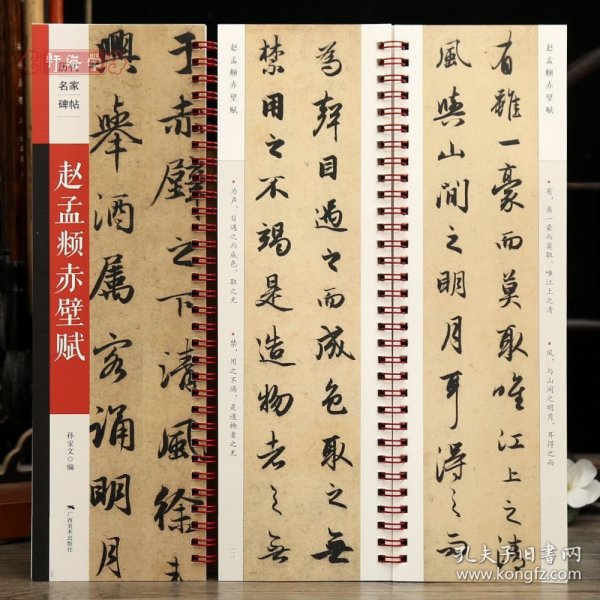 历代
名家
碑帖
赵孟頫赤壁赋
孙宝文 编
广西美术出版社
于赤壁之下清風徐
興舉酒属客诵明月
赵孟頫赤壁赋
有雖一豪而莫取唯江上之清
風與山間之明月耳得之而
• 有,虽一豪而莫取。唯江上之清
• 风,与山间之明月,耳得之而
赵孟頫赤壁赋
為聲目遇之而成色取之無
禁用之不竭是造物者之無
• 为声,目遇之而成色,取之无
• 禁,用之不竭,是造物者之无
孔夫子旧书网
www.kongfz.com